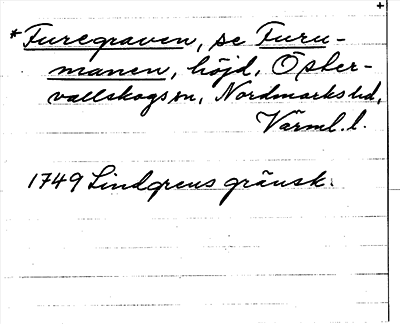 *Furegraven, se Furu-
manen, höjd, Öster-
vallskogs sn, Nordmarks hd,
Värml. l.
1749 Lindgrens gränsk.